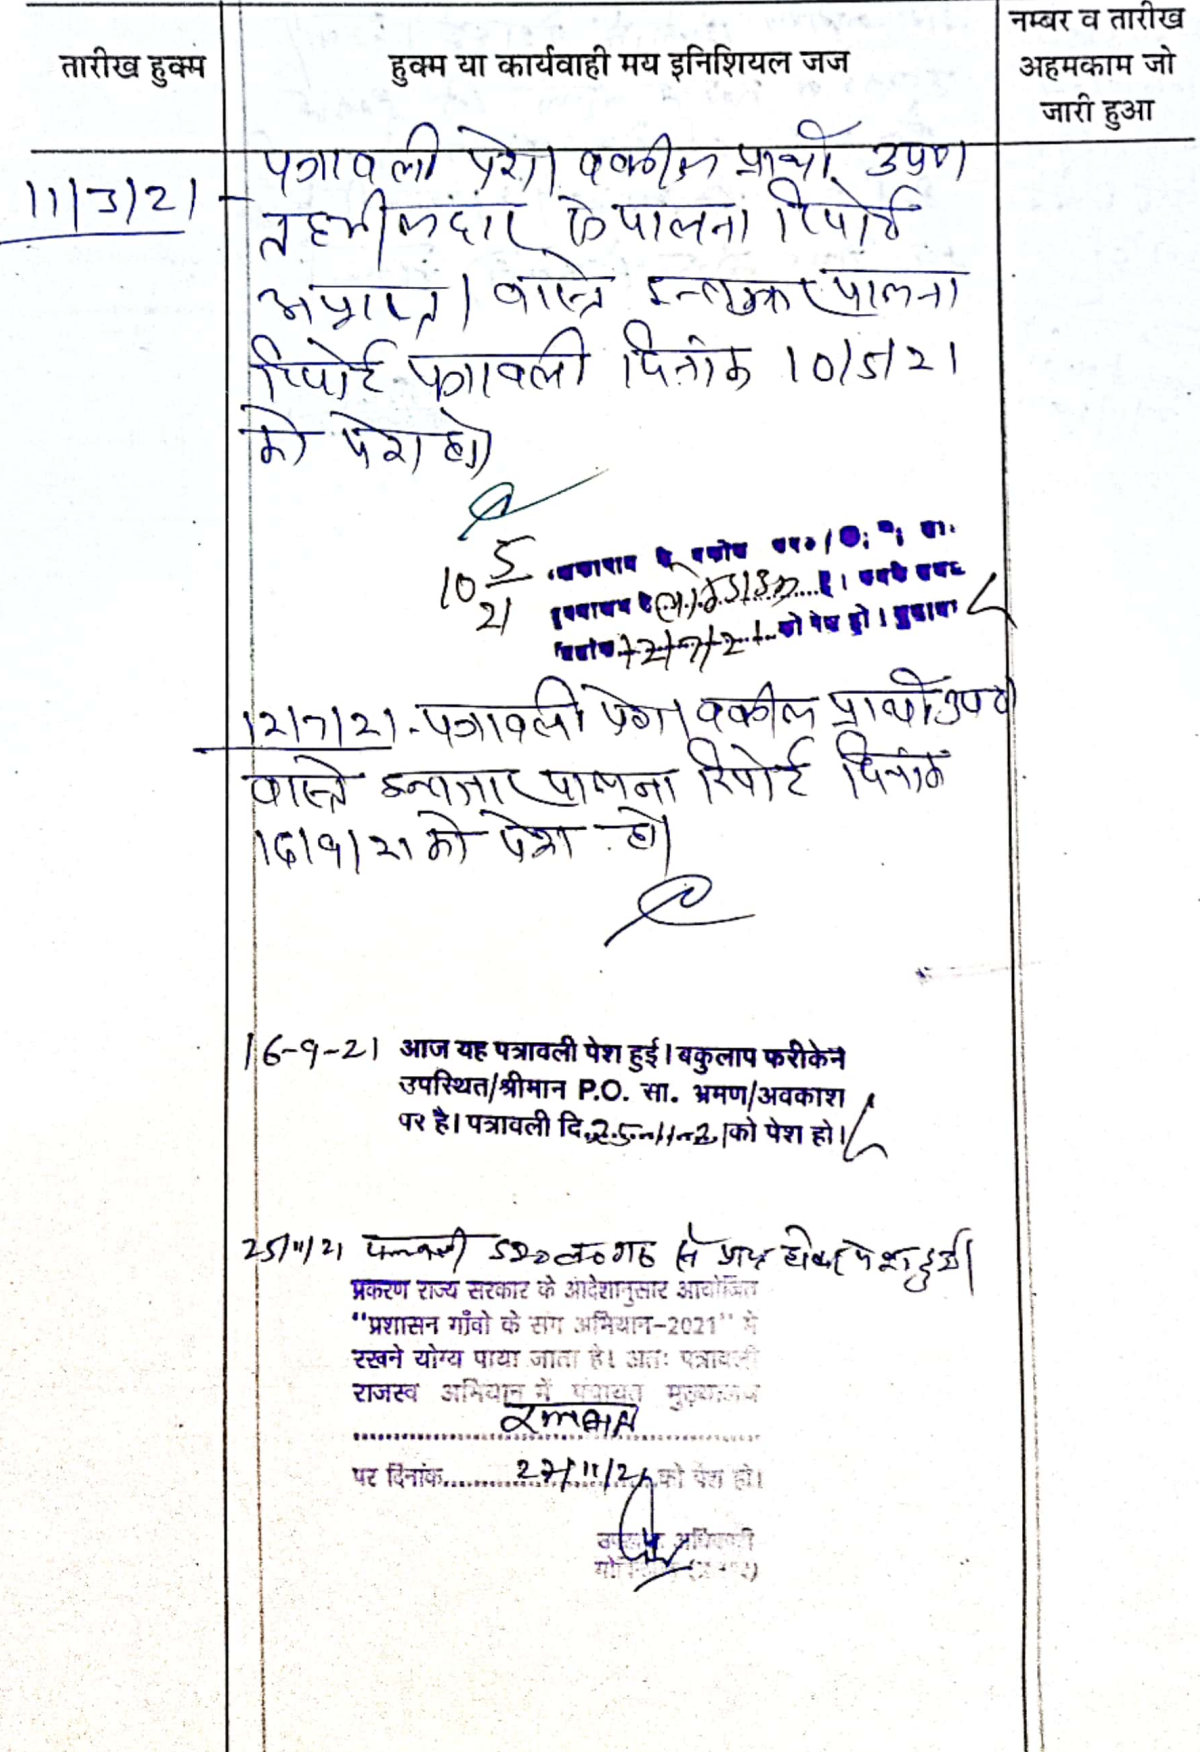 तारीख हुक्म
हुक्म या कार्यवाही मय इनिशियल जज
नम्बर व तारीख
अहमकाम जो
जारी हुआ
11/3/21
पत्रावली पेश। वकील प्रार्थी उप०।
तहसीलदार से पालना रिपोर्ट
अप्राप्त। वास्ते इन्तजार पालना
रिपोर्ट पत्रावली दिनांक 10/5/21
को पेश हो।
10 5/21
को पेश हो।
12/7/21
12/7/21 - पत्रावली पेश। वकील प्रार्थी उप०
वास्ते इन्तजार पालना रिपोर्ट दिनांक
16/9/21 को पेश हो।
16-9-21 आज यह पत्रावली पेश हुई। बकुलाप फरीकेन
उपस्थित/श्रीमान P.O. सा. भ्रमण/अवकाश
पर है। पत्रावली दि. 25-11-21 को पेश हो।
25/11/21 पत्रावली से प्राप्त होकर पेश हुई।
प्रकरण राज्य सरकार के आदेशानुसार आयोजित
"प्रशासन गाँवो के संग अभियान-2021" मे
रखने योग्य पाया जाता है। अतः पत्रावली
राजस्व अभियान में पंचायत मुख्यालय
पर दिनांक 27/11/21 को पेश हो।
उपखण्ड अधिकारी